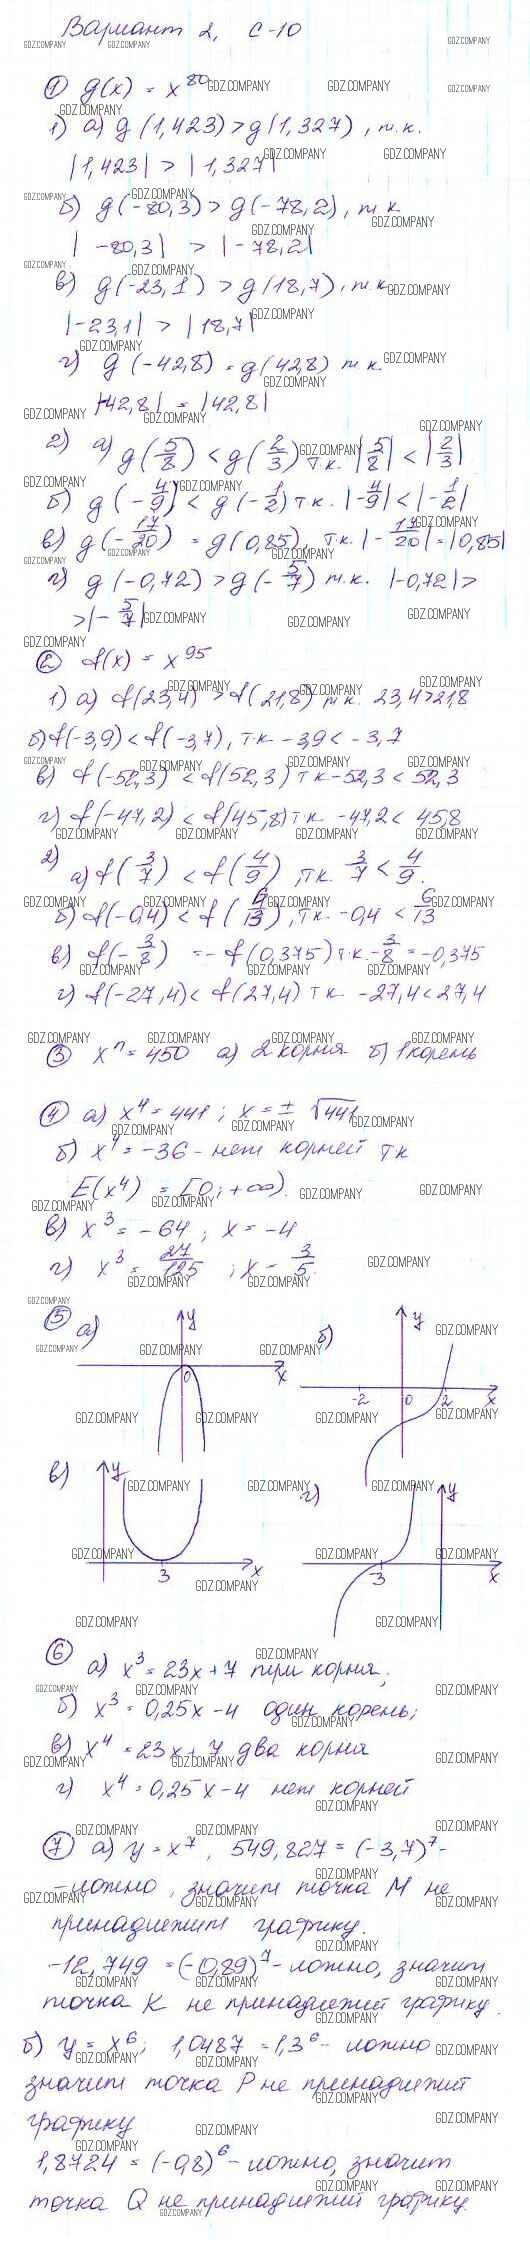 Вариант 2, С-10
① g(x) = x⁸⁰
1) а) g(1,423) > g(1,327), т.к.
|1,423| > |1,327|
б) g(-80,3) > g(-78,2), т.к
|-80,3| > |-78,2|
в) g(-23,1) > g(18,7), т.к
|-23,1| > |18,7|
г) g(-42,8) = g(42,8) т.к.
|-42,8| = |42,8|
2) а) g(5/8) < g(2/3) т.к. |5/8| < |2/3|
б) g(-4/9) < g(-1/2) т.к. |-4/9| < |-1/2|
в) g(-17/20) = g(0,85), т.к. |-17/20| = |0,85|
г) g(-0,72) > g(-5/7) т.к. |-0,72| >
> |-5/7|
② f(x) = x⁹⁵
1) а) f(23,4) > f(21,8) т.к. 23,4 > 21,8
б) f(-3,9) < f(-3,7), т.к -3,9 < -3,7
в) f(-52,3) < f(52,3) т.к -52,3 < 52,3
г) f(-47,2) < f(45,8) т.к. -47,2 < 45,8
2) а) f(3/7) < f(4/9), т.к. 3/7 < 4/9.
б) f(-0,4) < f(6/13), т.к. -0,4 < 6/13
в) f(-3/8) = -f(0,375) т.к. -3/8 = -0,375
г) f(-27,4) < f(27,4) т.к. -27,4 < 27,4
③ xⁿ = 450 а) 2 корня б) 1 корень
④ а) x⁴ = 441; x = ± √441
б) x⁴ = -36 - нет корней тк
E(x⁴) = [0; +∞).
в) x³ = -64; x = -4
г) x³ = 27/125; x = 3/5
⑤ а) y 0 x
б) y -2 0 2 x
в) y 3 x
г) y -3 x
⑥ а) x³ = 23x + 7 три корня;
б) x³ = 0,25x - 4 один корень;
в) x⁴ = 23x + 7 два корня
г) x⁴ = 0,25x - 4 нет корней
⑦ а) y = x⁷, 549,827 = (-3,7)⁷ -
- ложно, значит точка M не
принадлежит графику.
-12,749 = (-0,89)⁷ - ложно, значит
точка K не принадлежит графику.
б) y = x⁶; 1,0487 = 1,3⁶ - ложно
значит точка P не принадлежит
графику
1,8724 = (-0,8)⁶ - ложно, значит
точка Q не принадлежит графику.
GDZ.COMPANY